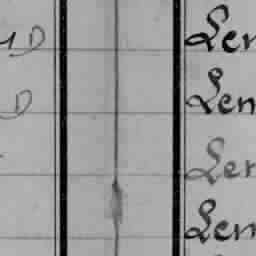 D Len
D Len
Len
Len